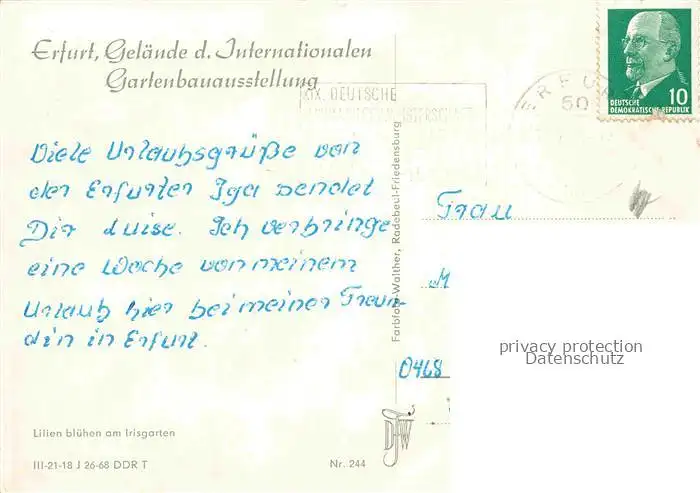 Erfurt, Gelände d. Internationalen
Gartenbauausstellung
XIX. DEUTSCHE
ERFU
50
10
DEUTSCHE
DEMOKRATISCHE REPUBLIK
Viele Urlaubsgrüße von
der Erfurter Iga sendet
Dir Luise. Ich verbringe
eine Woche von meinem
Urlaub hier bei meiner Freun-
din in Erfurt.
Frau
M
0468
Farbfoto-Walther, Radebeul-Friedensburg
privacy protection
Datenschutz
Lilien blühen am Irisgarten
III-21-18 J 26-68 DDR T
Nr. 244